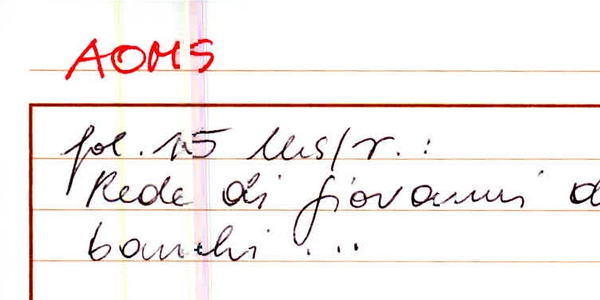 AOMS
fol. 15 lus/r.:
Rede di Giovanni d
banchi ...